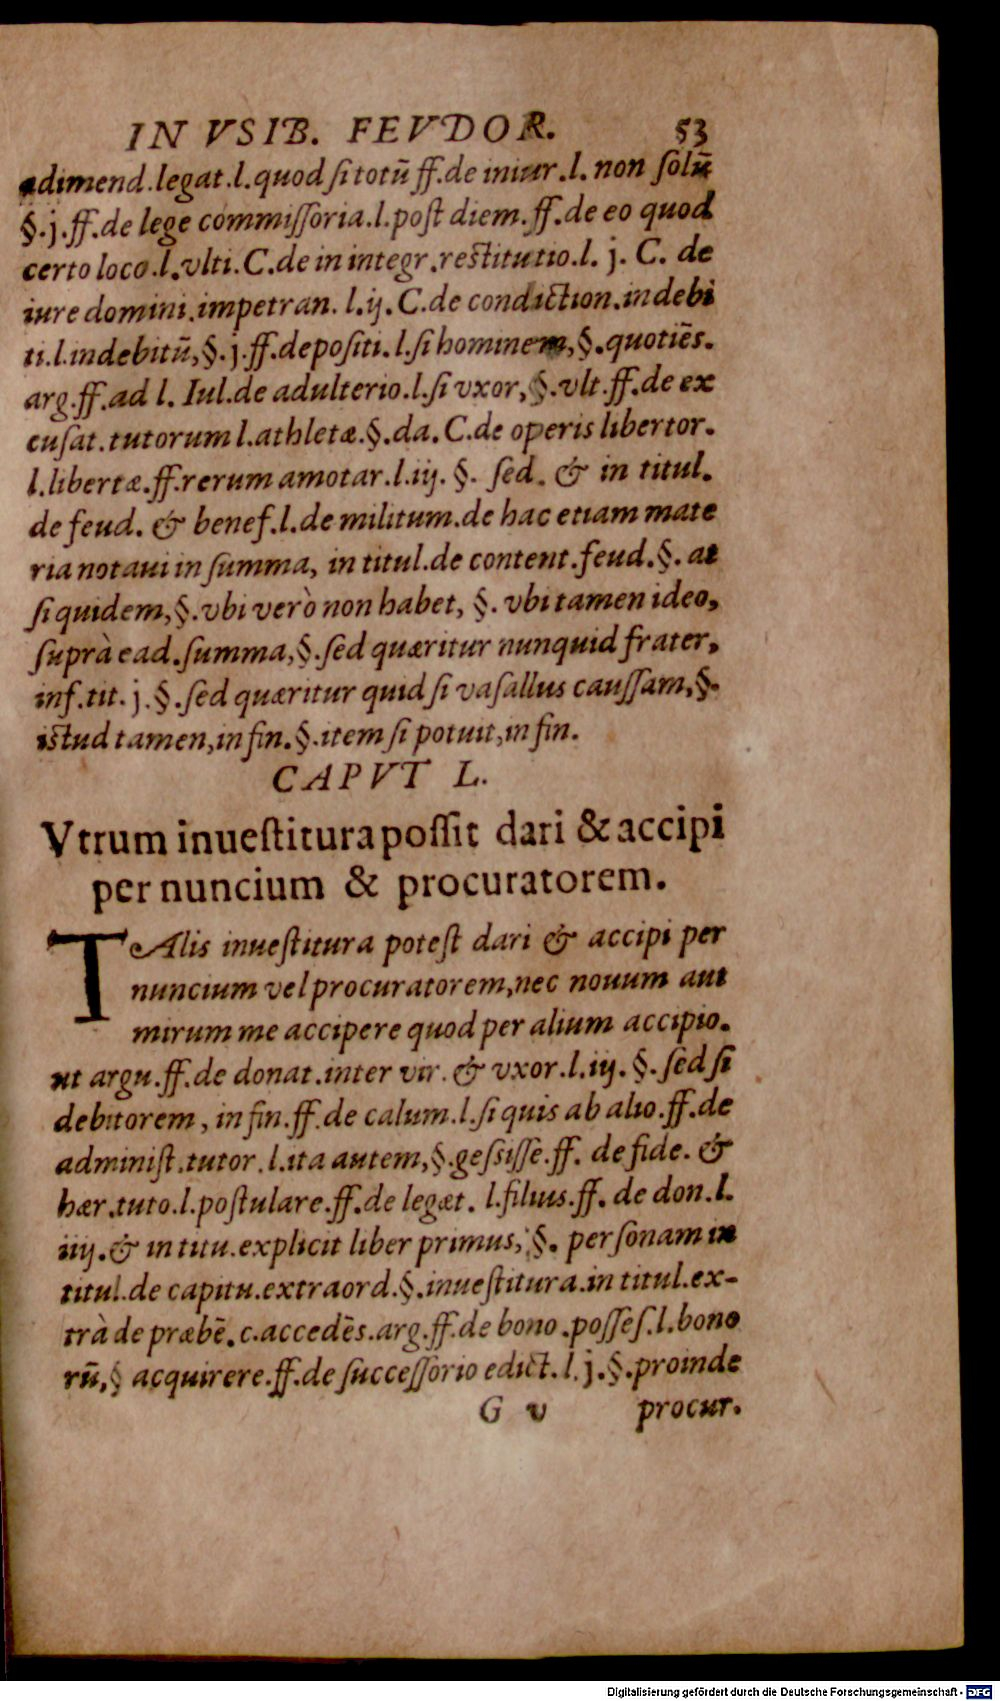 IN VSIB. FEVDOR. 53
adimend.legat.l.quod ſi totū ff.de iniur.l. non ſolū
§.j.ff.de lege commiſſoria.l.poſt diem.ff.de eo quod
certo loco.l.vlti.C.de in integr.reſtitutio.l. j. C. de
iure domini.impetran. l.ij. C.de condiction.indebi
ti.l.indebitū,§.j.ff.depoſiti.l.ſi hominem,§.quotiēs.
arg.ff.ad l. Iul.de adulterio.l.ſi vxor,§.vlt.ff.de ex
cuſat.tutorum l.athletæ.§.da.C.de operis libertor.
l.libertæ.ff.rerum amotar.l.iij. §. ſed. & in titul.
de feud. & benef.l.de militum.de hac etiam mate
ria notaui in ſumma, in titul.de content.feud.§. at
ſi quidem,§.vbi verò non habet, §. vbi tamen ideo,
ſuprà ead.ſumma,§.ſed quæritur nunquid frater,
inf.tit. j.§.ſed quæritur quid ſi vaſallus cauſſam,§.
iſtud tamen,in fin.§.item ſi potuit,in fin.
CAPVT L.
Vtrum inueſtitura poſſit dari & accipi
per nuncium & procuratorem.
TAlis inueſtitura poteſt dari & accipi per
nuncium vel procuratorem,nec nouum aut
mirum me accipere quod per alium accipio.
ut argu.ff.de donat.inter vir. & vxor.l.iij. §. ſed ſi
debitorem, in fin.ff.de calum.l.ſi quis ab alio.ff.de
adminiſt.tutor.l.ita autem,§.geſsiſſe.ff. de fide. &
hær.tuto.l.poſtulare.ff.de legæt. l.filius.ff. de don.l.
iiij.& in titu.explicit liber primus, §. perſonam in
titul.de capitu.extraord.§.inueſtitura.in titul.ex-
trà de præbē.c.accedēs.arg.ff.de bono.poſſeſ.l.bono
rū,§ acquirere.ff.de ſucceſſorio edict.l.j.§.proinde
G v procur.
Digitalisierung gefördert durch die Deutsche Forschungsgemeinschaft - DFG